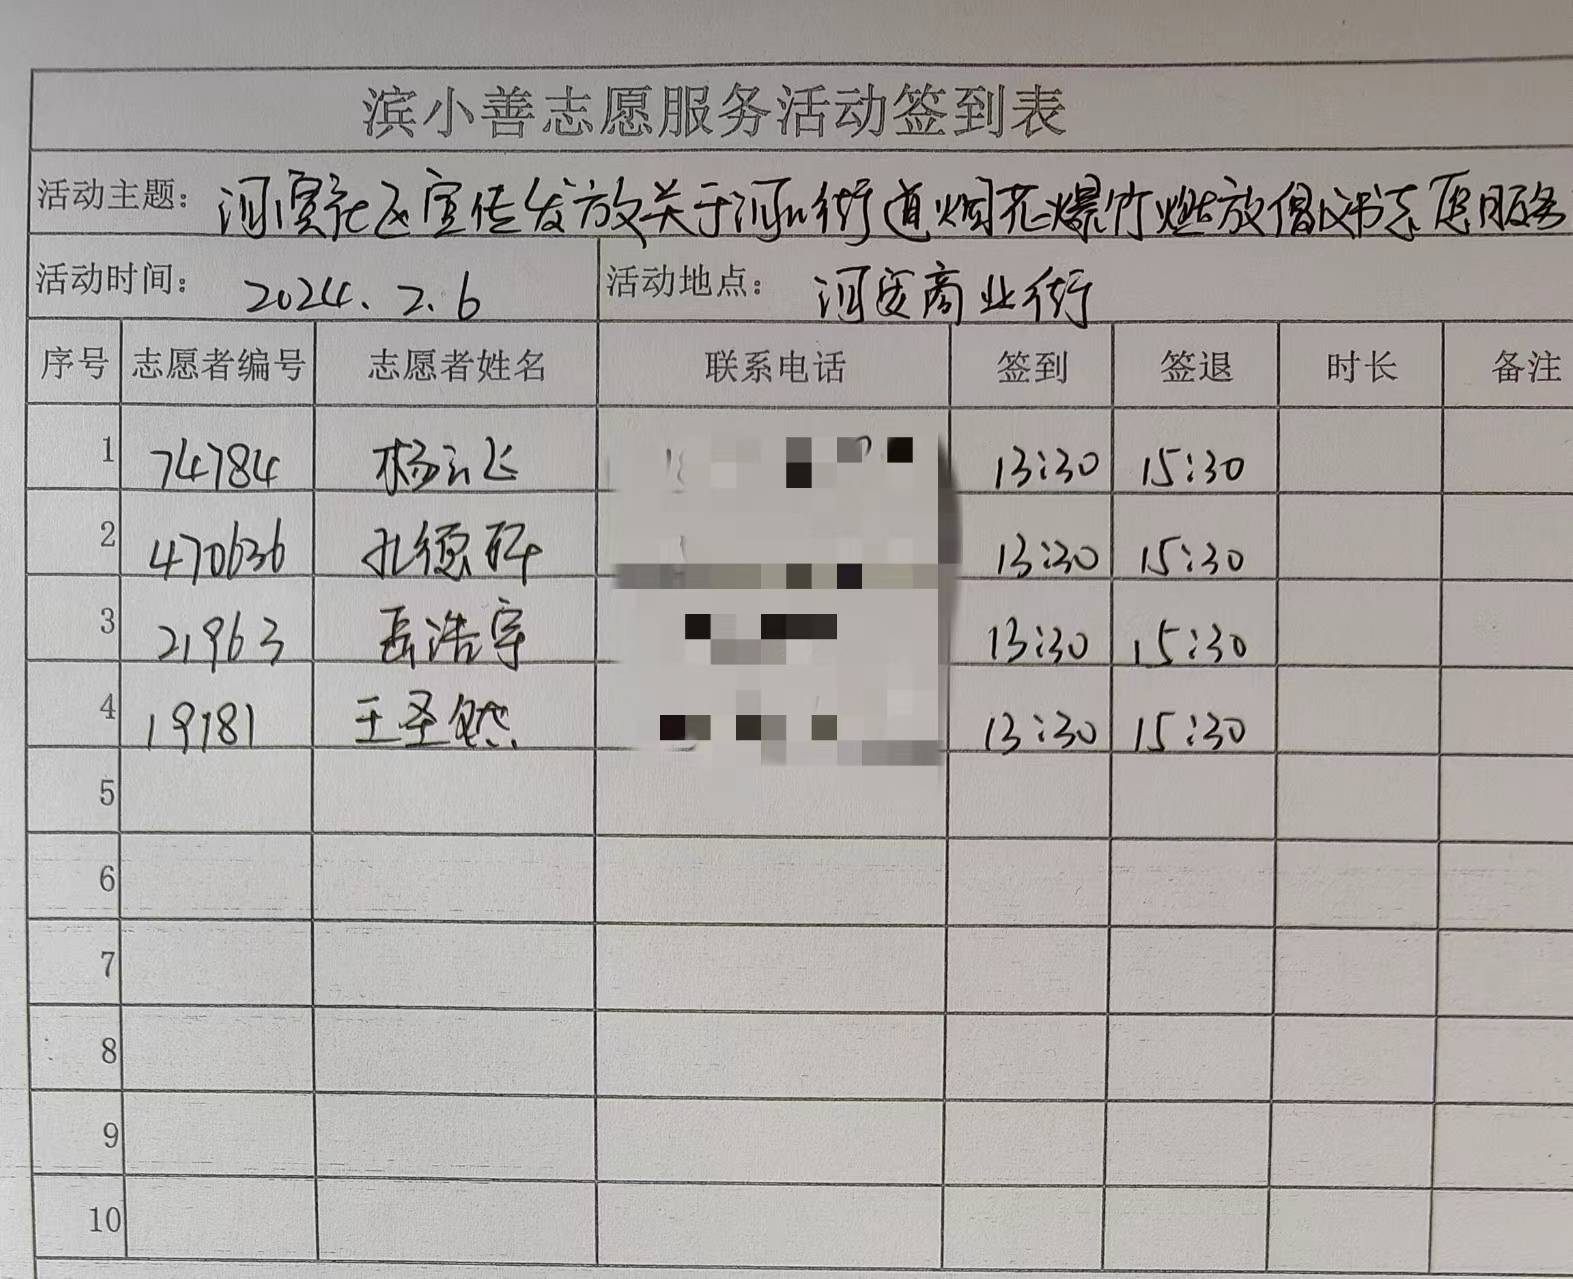 滨小善志愿服务活动签到表
活动主题： 河滨社区宣传发放关于河口街道烟花爆竹燃放倡议书志愿服务
活动时间： 2024.2.6 活动地点： 河滨商业街
序号 志愿者编号 志愿者姓名 联系电话 签到 签退 时长 备注
1 74784 杨云飞 13:30 15:30
2 470636 孔德 13:30 15:30
3 21963 岳浩宇 13:30 15:30
4 19781 王圣然 13:30 15:30
5
6
7
8
9
10